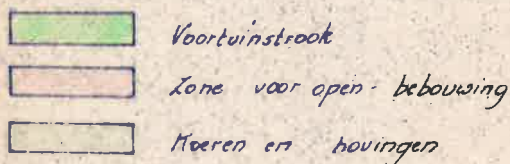 Voortuinstrook
Zone voor open- bebouwing
Koeren en hovingen